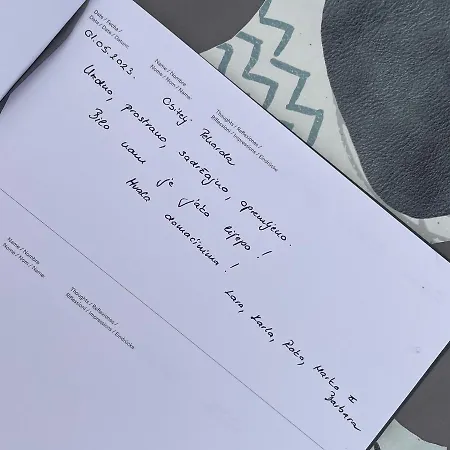 Date / Fecha /
Date / Data / Datum:
01.05.2023.
Name / Nombre
Nome / Nom / Name:
Obitelj Poharda
Thoughts / Reflexiones /
Riflessioni / Impressions / Eindrücke
Uredno, prostrano, sadržajno, opremljeno.
Bilo nam je jako lijepo!
Hvala domaćinima!
Lara, Karla, Roko, Marko II
Barbara
Name / Nombre
Nome / Nom / Name:
Thoughts / Reflexiones /
Riflessioni / Impressions / Eindrücke